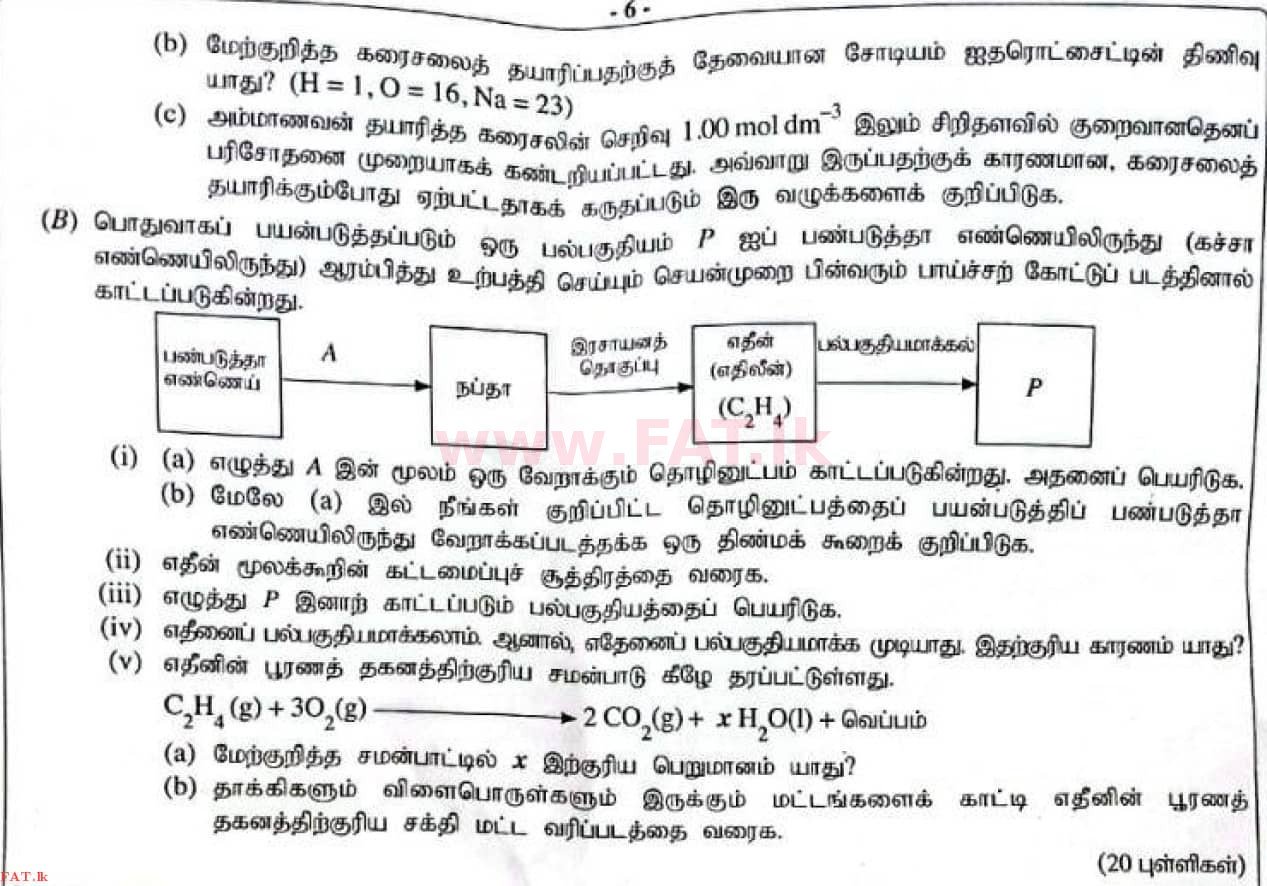 - 6 -
(b) மேற்குறித்த கரைசலைத் தயாரிப்பதற்குத் தேவையான சோடியம் ஐதரொட்சைட்டின் திணிவு
யாது? (H = 1, O = 16, Na = 23)
(c) அம்மாணவன் தயாரித்த கரைசலின் செறிவு 1.00 mol dm⁻³ இலும் சிறிதளவில் குறைவானதெனப்
பரிசோதனை முறையாகக் கண்டறியப்பட்டது. அவ்வாறு இருப்பதற்குக் காரணமான, கரைசலைத்
தயாரிக்கும்போது ஏற்பட்டதாகக் கருதப்படும் இரு வழுக்களைக் குறிப்பிடுக.
(B) பொதுவாகப் பயன்படுத்தப்படும் ஒரு பல்பகுதியம் P ஐப் பண்படுத்தா எண்ணெயிலிருந்து (கச்சா
எண்ணெயிலிருந்து) ஆரம்பித்து உற்பத்தி செய்யும் செயன்முறை பின்வரும் பாய்ச்சற் கோட்டுப் படத்தினால்
காட்டப்படுகின்றது.
பண்படுத்தா
எண்ணெய்
A
நப்தா
இரசாயனத்
தொகுப்பு
எதீன்
(எதிலீன்)
(C₂H₄)
பல்பகுதியமாக்கல்
P
www.FAT.lk
(i) (a) எழுத்து A இன் மூலம் ஒரு வேறாக்கும் தொழினுட்பம் காட்டப்படுகின்றது. அதனைப் பெயரிடுக.
(b) மேலே (a) இல் நீங்கள் குறிப்பிட்ட தொழினுட்பத்தைப் பயன்படுத்திப் பண்படுத்தா
எண்ணெயிலிருந்து வேறாக்கப்படத்தக்க ஒரு திண்மக் கூறைக் குறிப்பிடுக.
(ii) எதீன் மூலக்கூறின் கட்டமைப்புச் சூத்திரத்தை வரைக.
(iii) எழுத்து P இனாற் காட்டப்படும் பல்பகுதியத்தைப் பெயரிடுக.
(iv) எதீனைப் பல்பகுதியமாக்கலாம். ஆனால், எதேனைப் பல்பகுதியமாக்க முடியாது. இதற்குரிய காரணம் யாது?
(v) எதீனின் பூரணத் தகனத்திற்குரிய சமன்பாடு கீழே தரப்பட்டுள்ளது.
C₂H₄ (g) + 3O₂(g) ⟶ 2 CO₂(g) + x H₂O(l) + வெப்பம்
(a) மேற்குறித்த சமன்பாட்டில் x இற்குரிய பெறுமானம் யாது?
(b) தாக்கிகளும் விளைபொருள்களும் இருக்கும் மட்டங்களைக் காட்டி எதீனின் பூரணத்
தகனத்திற்குரிய சக்தி மட்ட வரிப்படத்தை வரைக.
(20 புள்ளிகள்)
FAT.lk